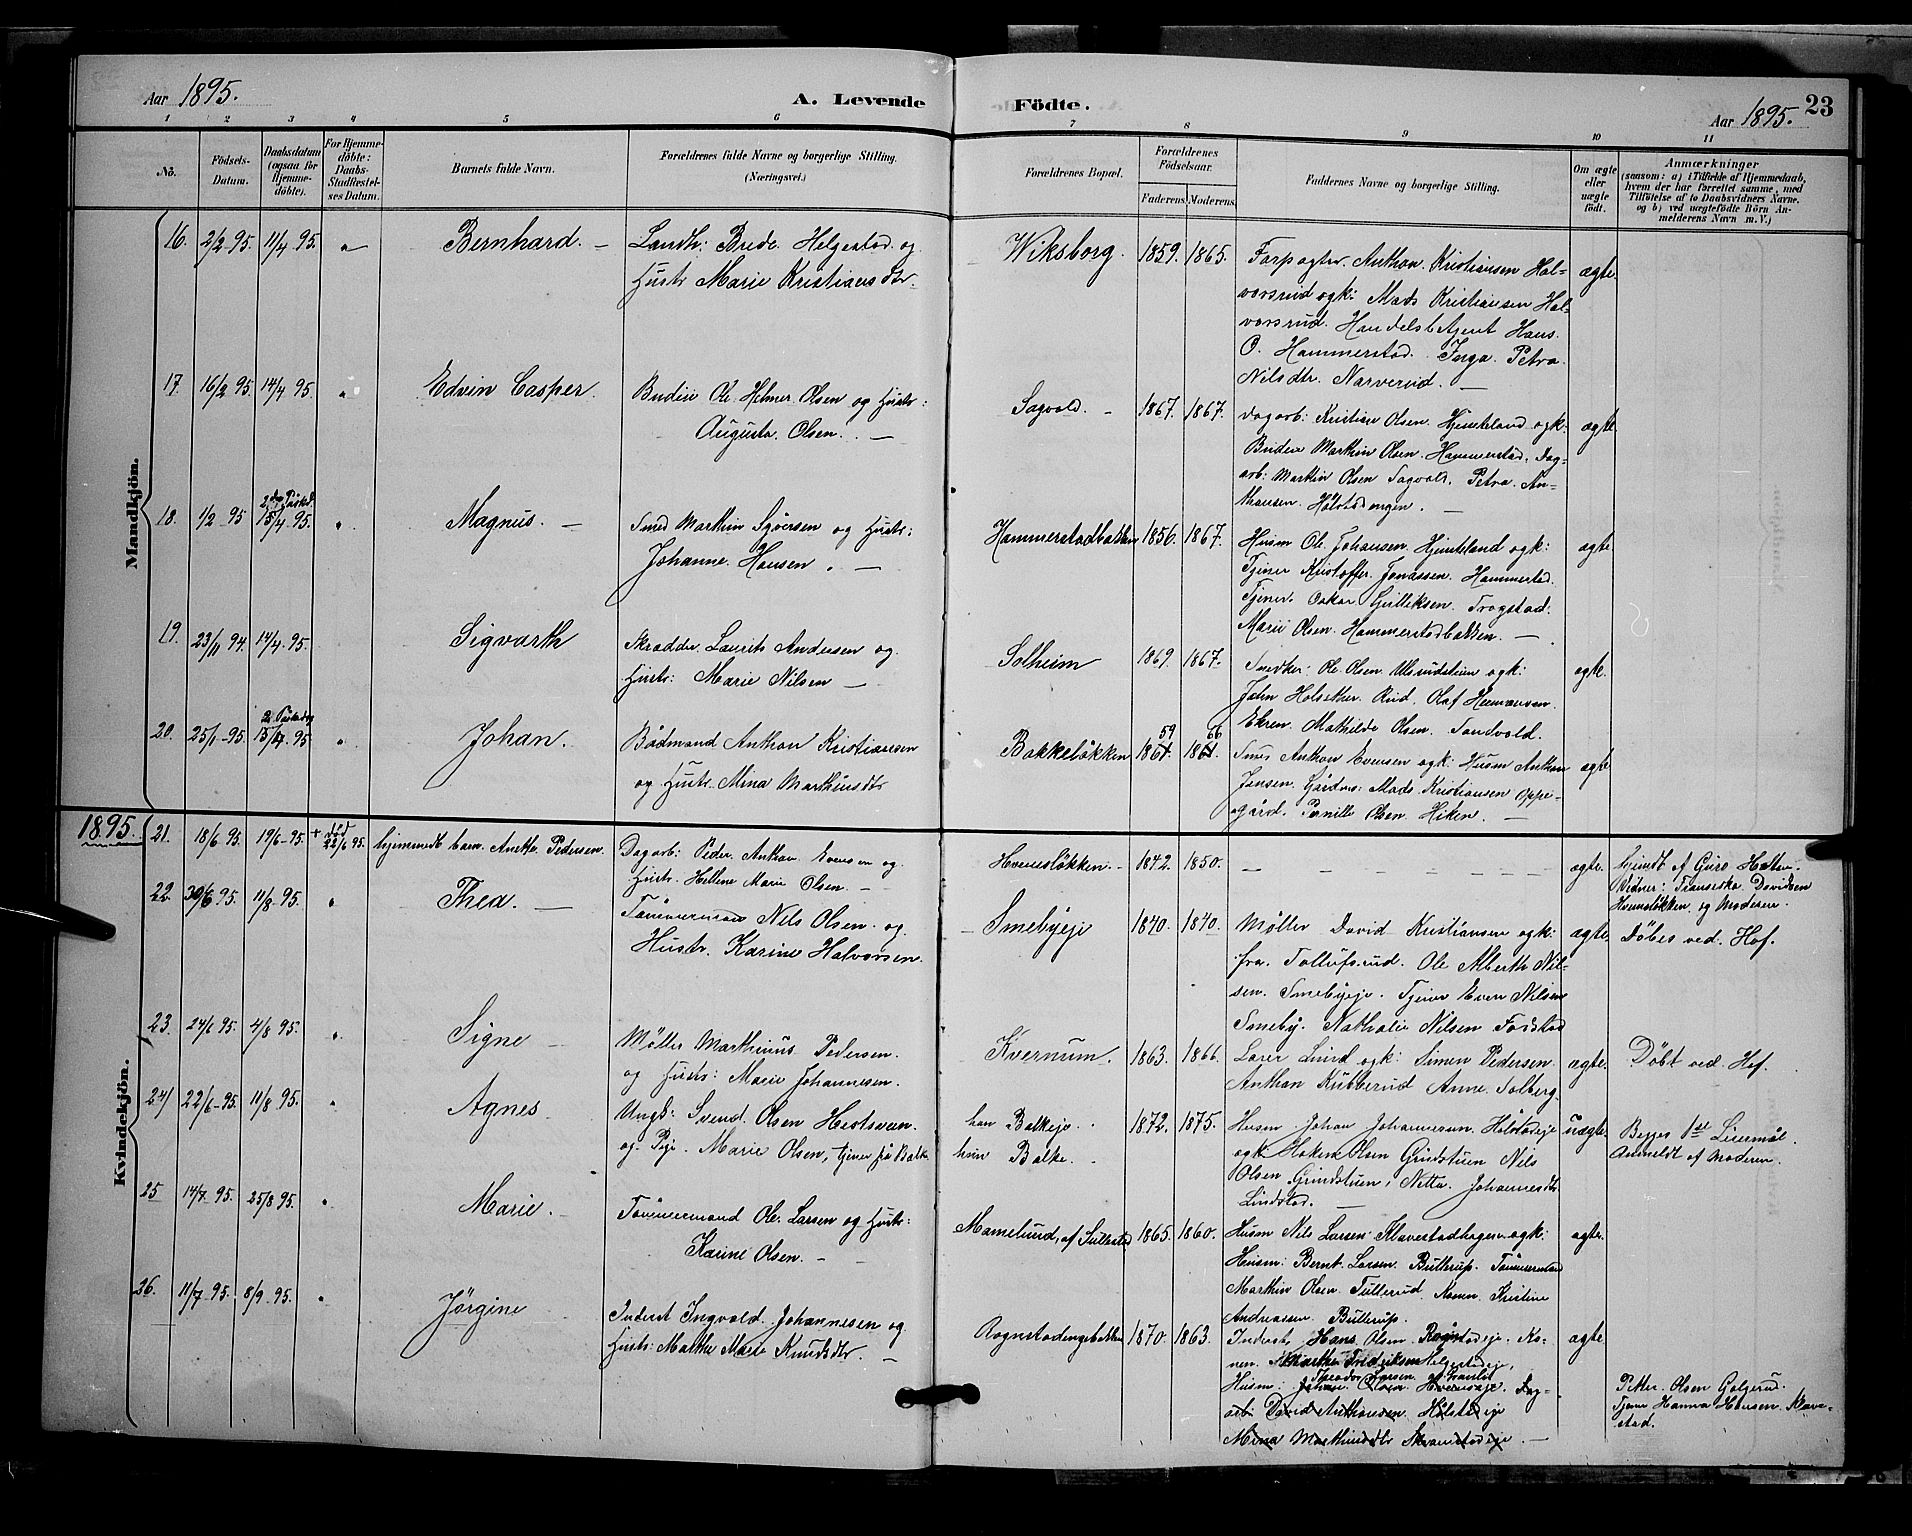 Aar 1895.
A. Levende
Födte.
Aar 1895.
23
1 2 3 4 5 6 7 8 9 10 11
No.
Födsels-
Datum.
Daabsdatum
(ogsaa for
Hjemme-
döbte).
For Hjemme-
döbte:
Daabs-
Stadfæstel-
ses Datum.
Barnets fulde Navn.
Forældrenes fulde Navne og borgerlige Stilling.
(Næringsvei.)
Forældrenes Bopæl.
Forældrenes
Födselsaar.
Faderens.
Moderens.
Faddernes Navne og borgerlige Stilling.
Om ægte
eller
uægte
födt.
Anmærkninger
(saasom: a) i Tilfælde af Hjemmedaab,
hvem der har forrettet samme, med
Tilföielse af to Daabsvidners Navne,
og b) ved uægtefödte Börn An-
melderens Navn m. V.)
Mandkjön.
16. 2/2-95. 11/4-95. " Bernhard. -
Landh: Brede Helgestad. og
Hustr Marie Kristiansdtr.
Wiksborg. 1859. 1865.
Forpagter Anthon. Kristiansen Hal-
vorsrud ogk: Mads Kristiansen Hal-
vorsrud. Handelsbetjent Hans.
O. Hammerstad. Inga. Petra.
Nilsdtr. Narverud. -
ægte.
17. 16/2-95. 14/4 95. " Edvin Casper.
Budeie Ole. Helmer. Olsen og Hustr:
Augusta. Olsen. . -
Sagvold. - 1867. 1867.
dagarb: Kristian Olsen. Hjemteland ogk:
Budeie Marthin Olsen. Hammerstad. Dag-
arb: Marthin Olsen Sagvold. Petra. An-
thansen. Holstadengen. -
ægte.
18. 1/2-95 2den Paaskd. 15/4 95. " Magnus. -
Smed Marthin Syversen og Hustr:
Johanne. Hansen. -
Hammerstadbakken 1856. 1867.
Husm Ole. Johansen. Hjemteland ogk:
Tjener Kristoffer. Jonassen. Hammerstad.
Tjener. Oskar Gulliksen. Trogstad.
Marie Olsen. Hammerstadbakken. -
ægte
19. 23/11 94. 14/4-95. Sigvarth
Skrædder. Laurits Andersen og
Hustr: Marie Nilsen -
Solheim 1869. 1867.
Snedker: Ole. Olsen. Ullsundsteien ogk:
John Holsether. Rud. Olaf Hermansen.
Ekren. Mathilde Olsen. Sandvold.
ægte.
20. 25/1-95. 2. Paaskedag 15/4 95 " Johan.
Bödmand Anthon Kristiansen
og Hustr. Mina Marthinsdtr
Bakkelökken 59 1861. 66 1861.
Smed Anthon Evensen ogk: Husm Anthon
Jensen. Gårdm: Mads. Kristiansen Oppe-
gård. Pernille Olsen. Hiken. -
ægte
Kvindekjön.
1895. 21. 18/6 95. 19/6-95. + død 22/6 95. hjemmedt barn. Anethe. Pedersen.
Dagarb: Peder. Anthon. Evensen og
Hustr. Hellene Marie Olsen. -
Hvenslökken. - 1842. 1850. - - - - - ægte.
hjemdt af Guro Hatten.
Vidner: Fransiska Davidsen
Hvenslökken. og Moderen.
22. 30/6 95. 11/8-95. " Thea. -
Tömmermand Nils Olsen. og
Hustr. Karine Halvorsen.
Smebyeje 1840. 1840.
Møller David Kristiansen ogk:
fra. Tollufsrud. Ole Alberth Nil-
sen. Smebyeje. Tjener Even Nilsen
Smeby. Nathalie Nilsen Fodstad
ægte. Döbes ved. Hof.
23. 24/6 95. 4/8 95. " Signe -
Møller Marthinus Pedersen.
og Hustr: Marie Johannesen.
Kvernum. 1863. 1866.
Lærer Lund ogk: Simen Pedersen.
Anthon Kubberud Anne. Solberg.
ægte. Döbt ved Hof.
24 22/6-95. 11/8 95. " Agnes.
Ungk: Svend. Olsen Hestsveen.
og. Pige. Marie Olsen, tjener på Balke
han Balkeje. .
hun Balke. .
1872. 1875.
Husm Johan Johannesen. Holstadeje
ogk Hoken Olsen Grindstuen Nils
Olsen Grindstuen, Netta. Johannesdtr
Lindstad. -
uægte. Begges 1ste Leiermål.
Anmeldt af Moderen.
25 14/7 95. 25/8 95. " Marie. -
Tømmermand Ole. Larsen og Hustr:
Karine Olsen. -
Mamelund, af Sullestad 1865. 1860.
Husm Nils Larsen Klavestadhagen. ogk:
Husm: Bernt. Larsen. Bullerup. Tømmermand
Marthin Olsen. Tullerud. Konen. Kristine
Andreassen. Bullerup.
ægte.
26. 11/7 95. 8/9-95. " Jörgine
Inderst Ingvald Johannesen og
Hustr: Mathe Marie Knudsdtr. -
Rognstadengebakken 1870. 1863.
Inderst, Hans Olsen. Rognstadeje. Ko-
nen. Marthe Fredriksen Helgestadeje,
Husm: Johan Olsen Hvenseje. Dag-
arb: David Anthonsen. Holstadeje
Mina Marthinsdtr Skramstadeje. -
ægte
Petter. Olsen Golgerud.
Tjene Hanna Hansen. Klave-
stad.